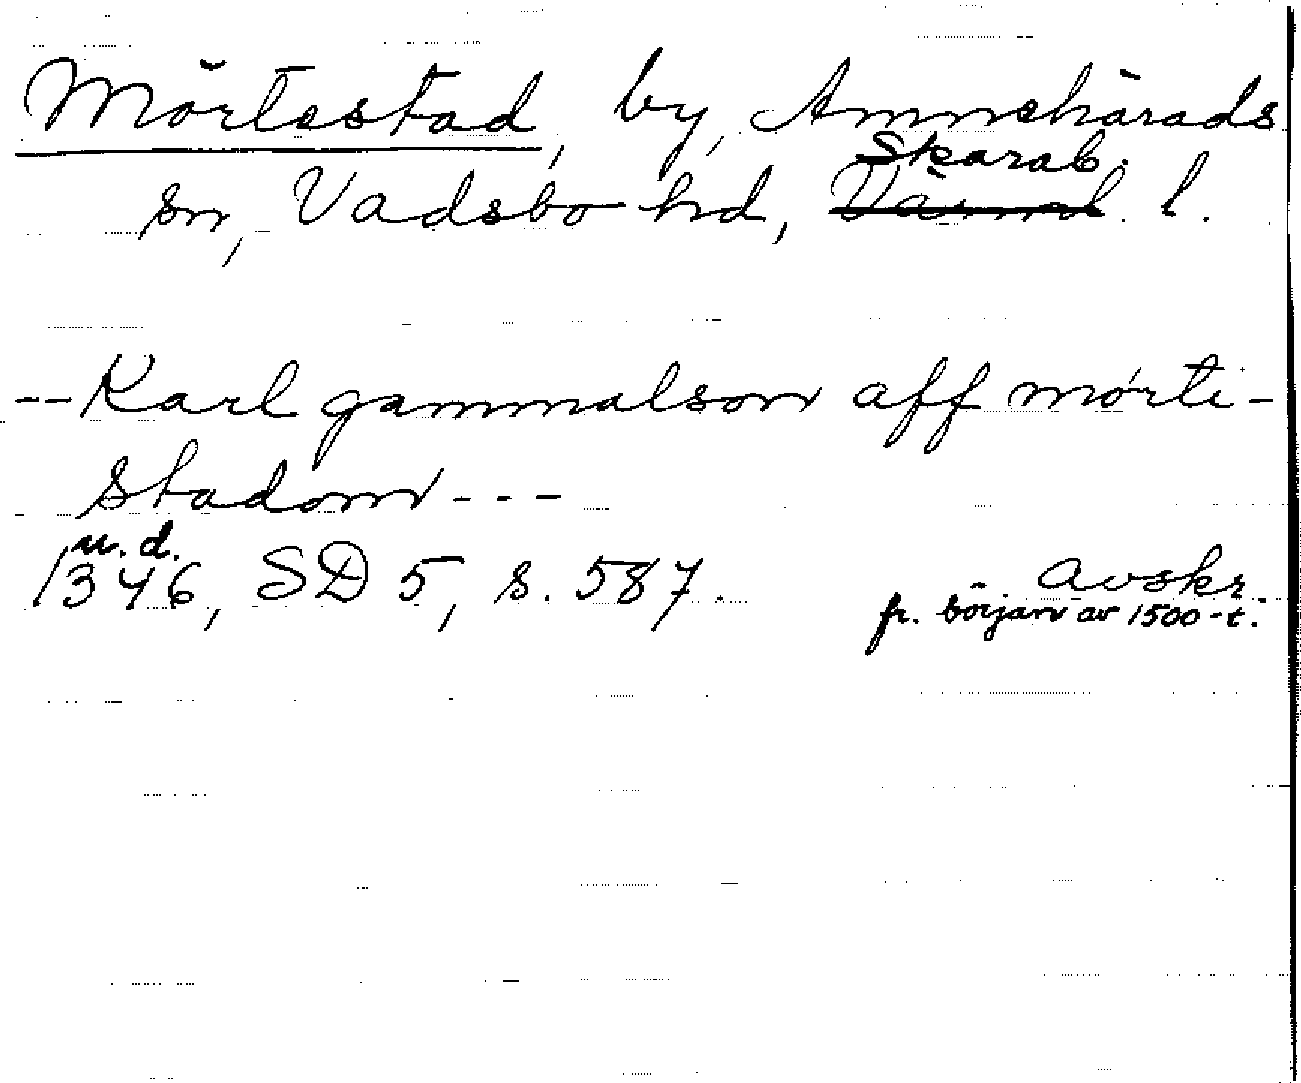 Mörtestad, by, Amnehärads
Skarab.
sn, Vadsbo hd, Värml. l.
-- Karl gammalson aff mörti-
stadom - - -
u. d.
1346, SD 5, s. 587.
Avskr.
fr. början av 1500-t.